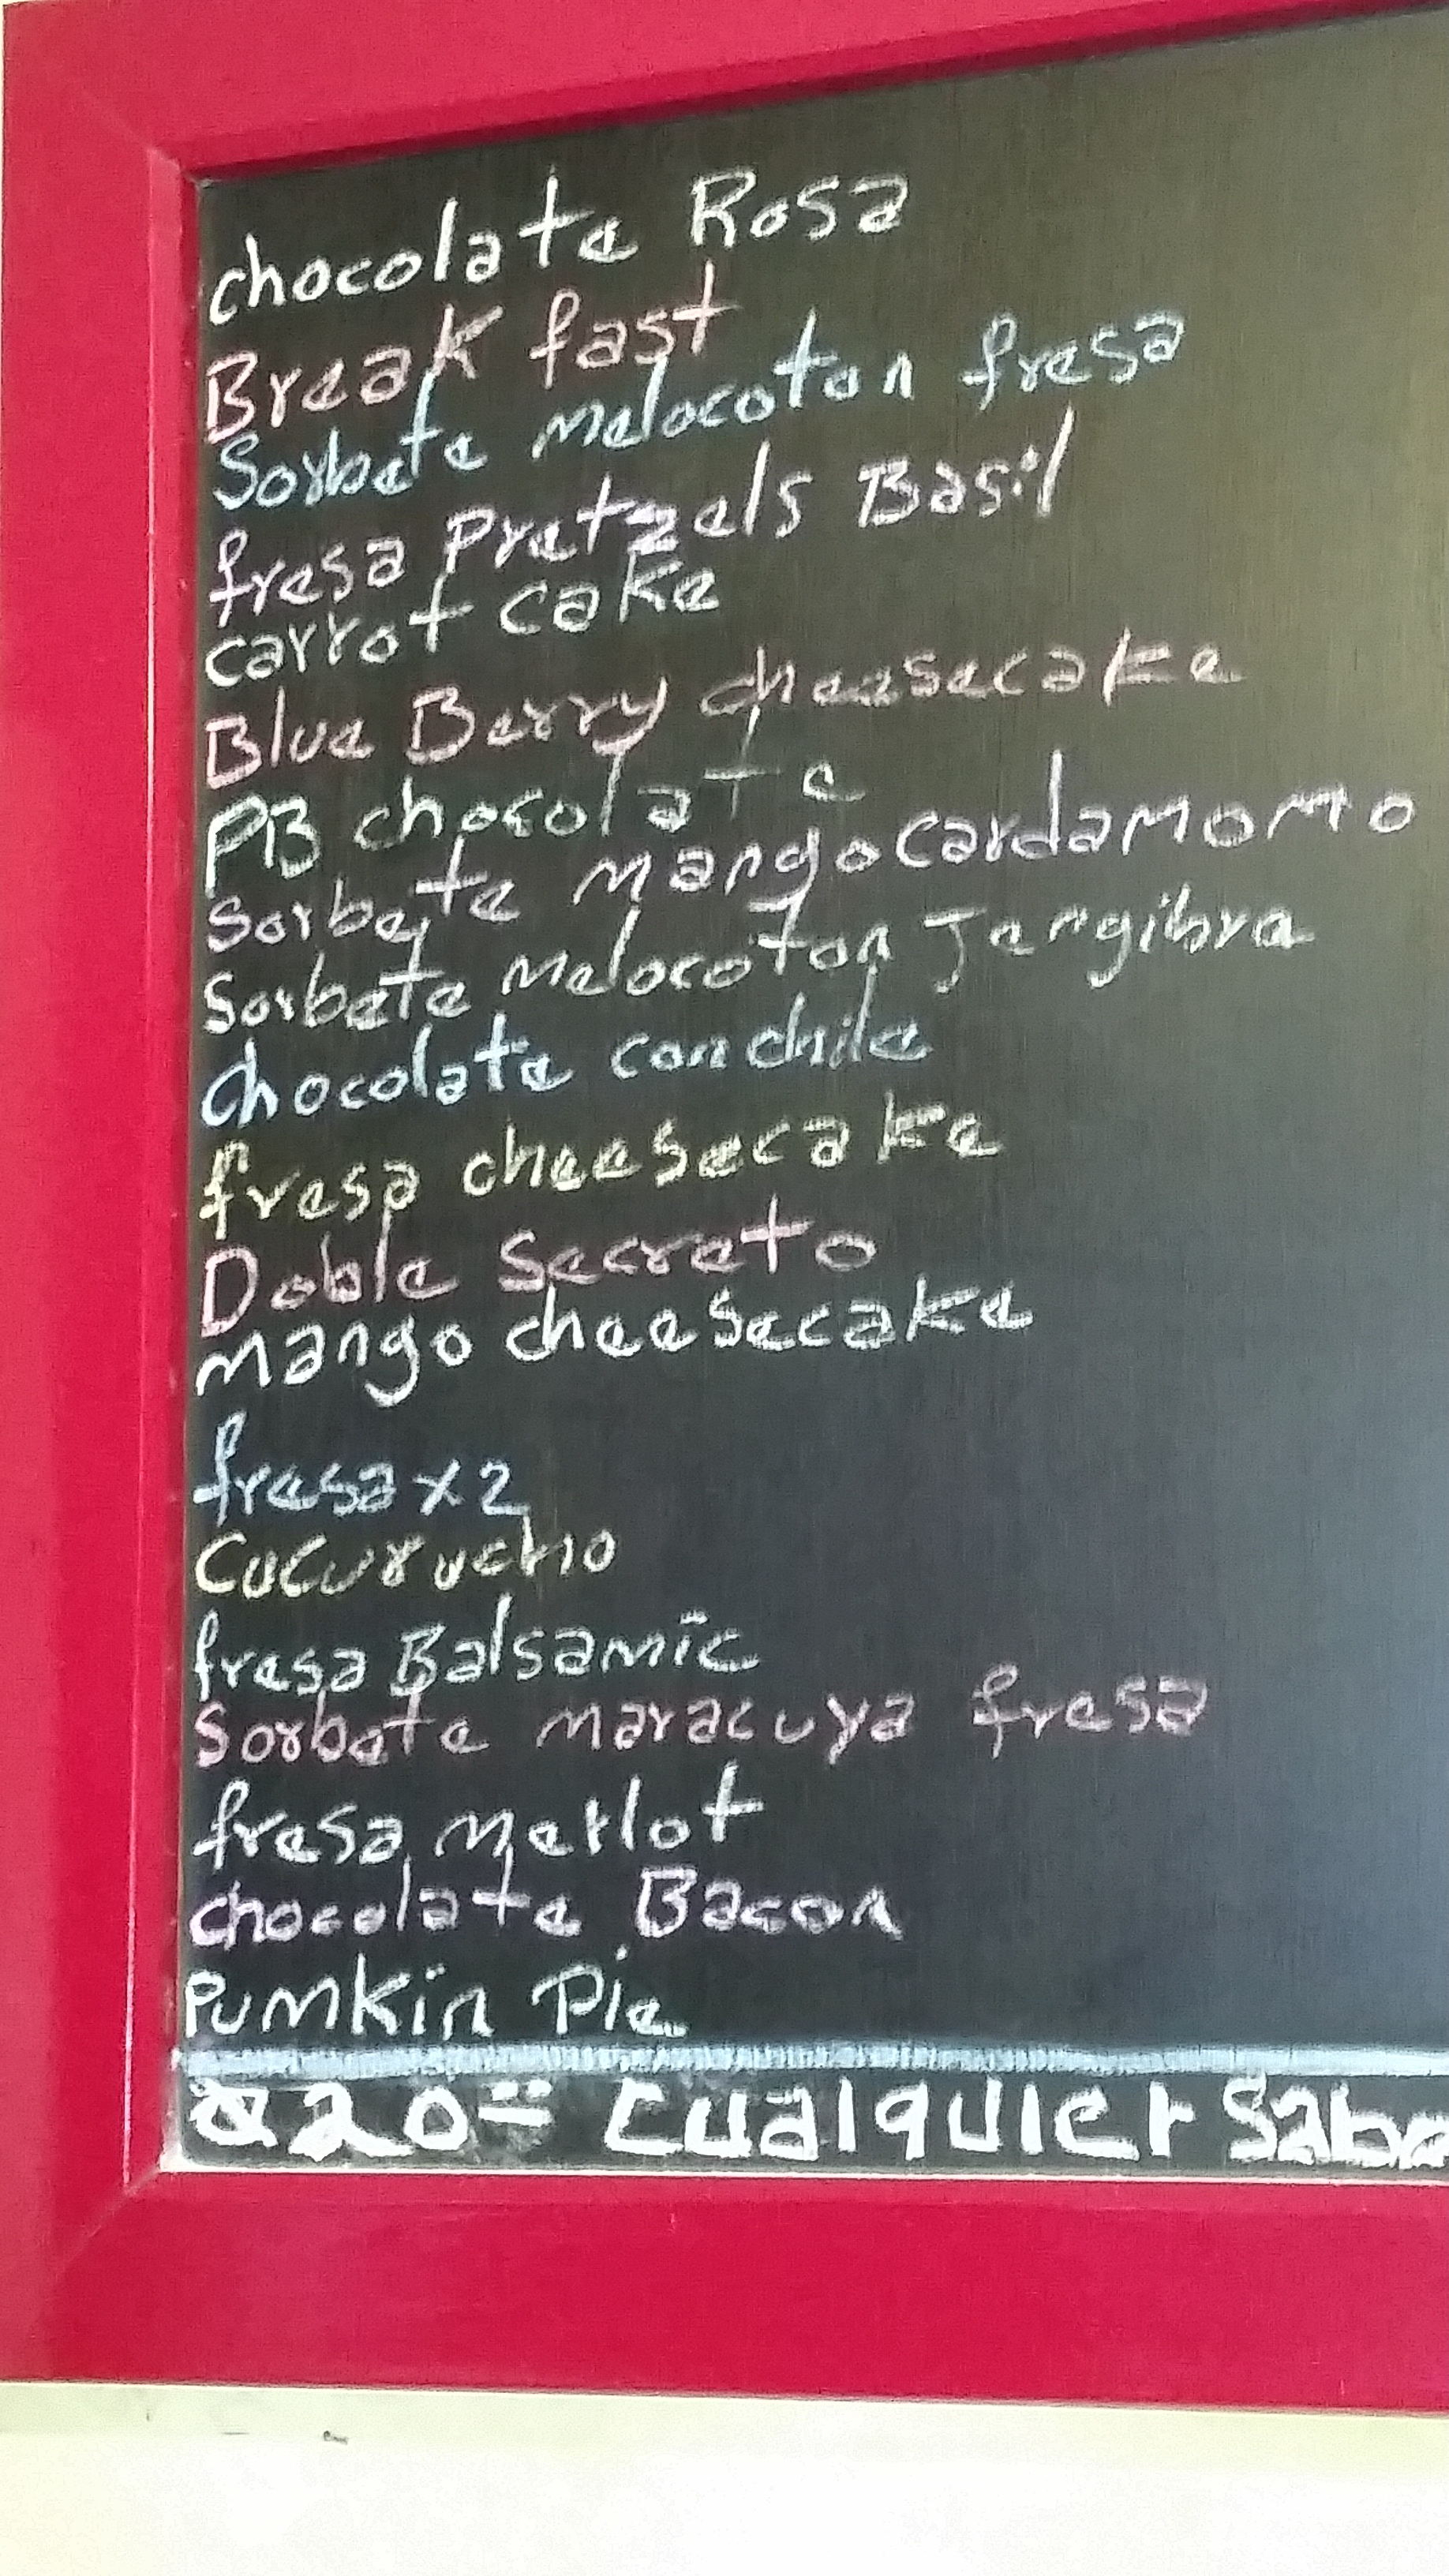 chocolate Rosa
Break fast
Sorbete melocoton fresa
fresa Pretzels Basil
carrot cake
Blue Berry cheesecake
PB chocolate
Sorbete Mango Cardamomo
Sorbete Melocoton Jengibre
chocolate con chile
fresa cheesecake
Doble Secreto
mango cheesecake
fresa x2
Cucurucho
fresa Balsamic
Sorbete maracuya fresa
fresa Merlot
chocolate Bacon
Pumkin Pie
Q20= Cualquier Sabo